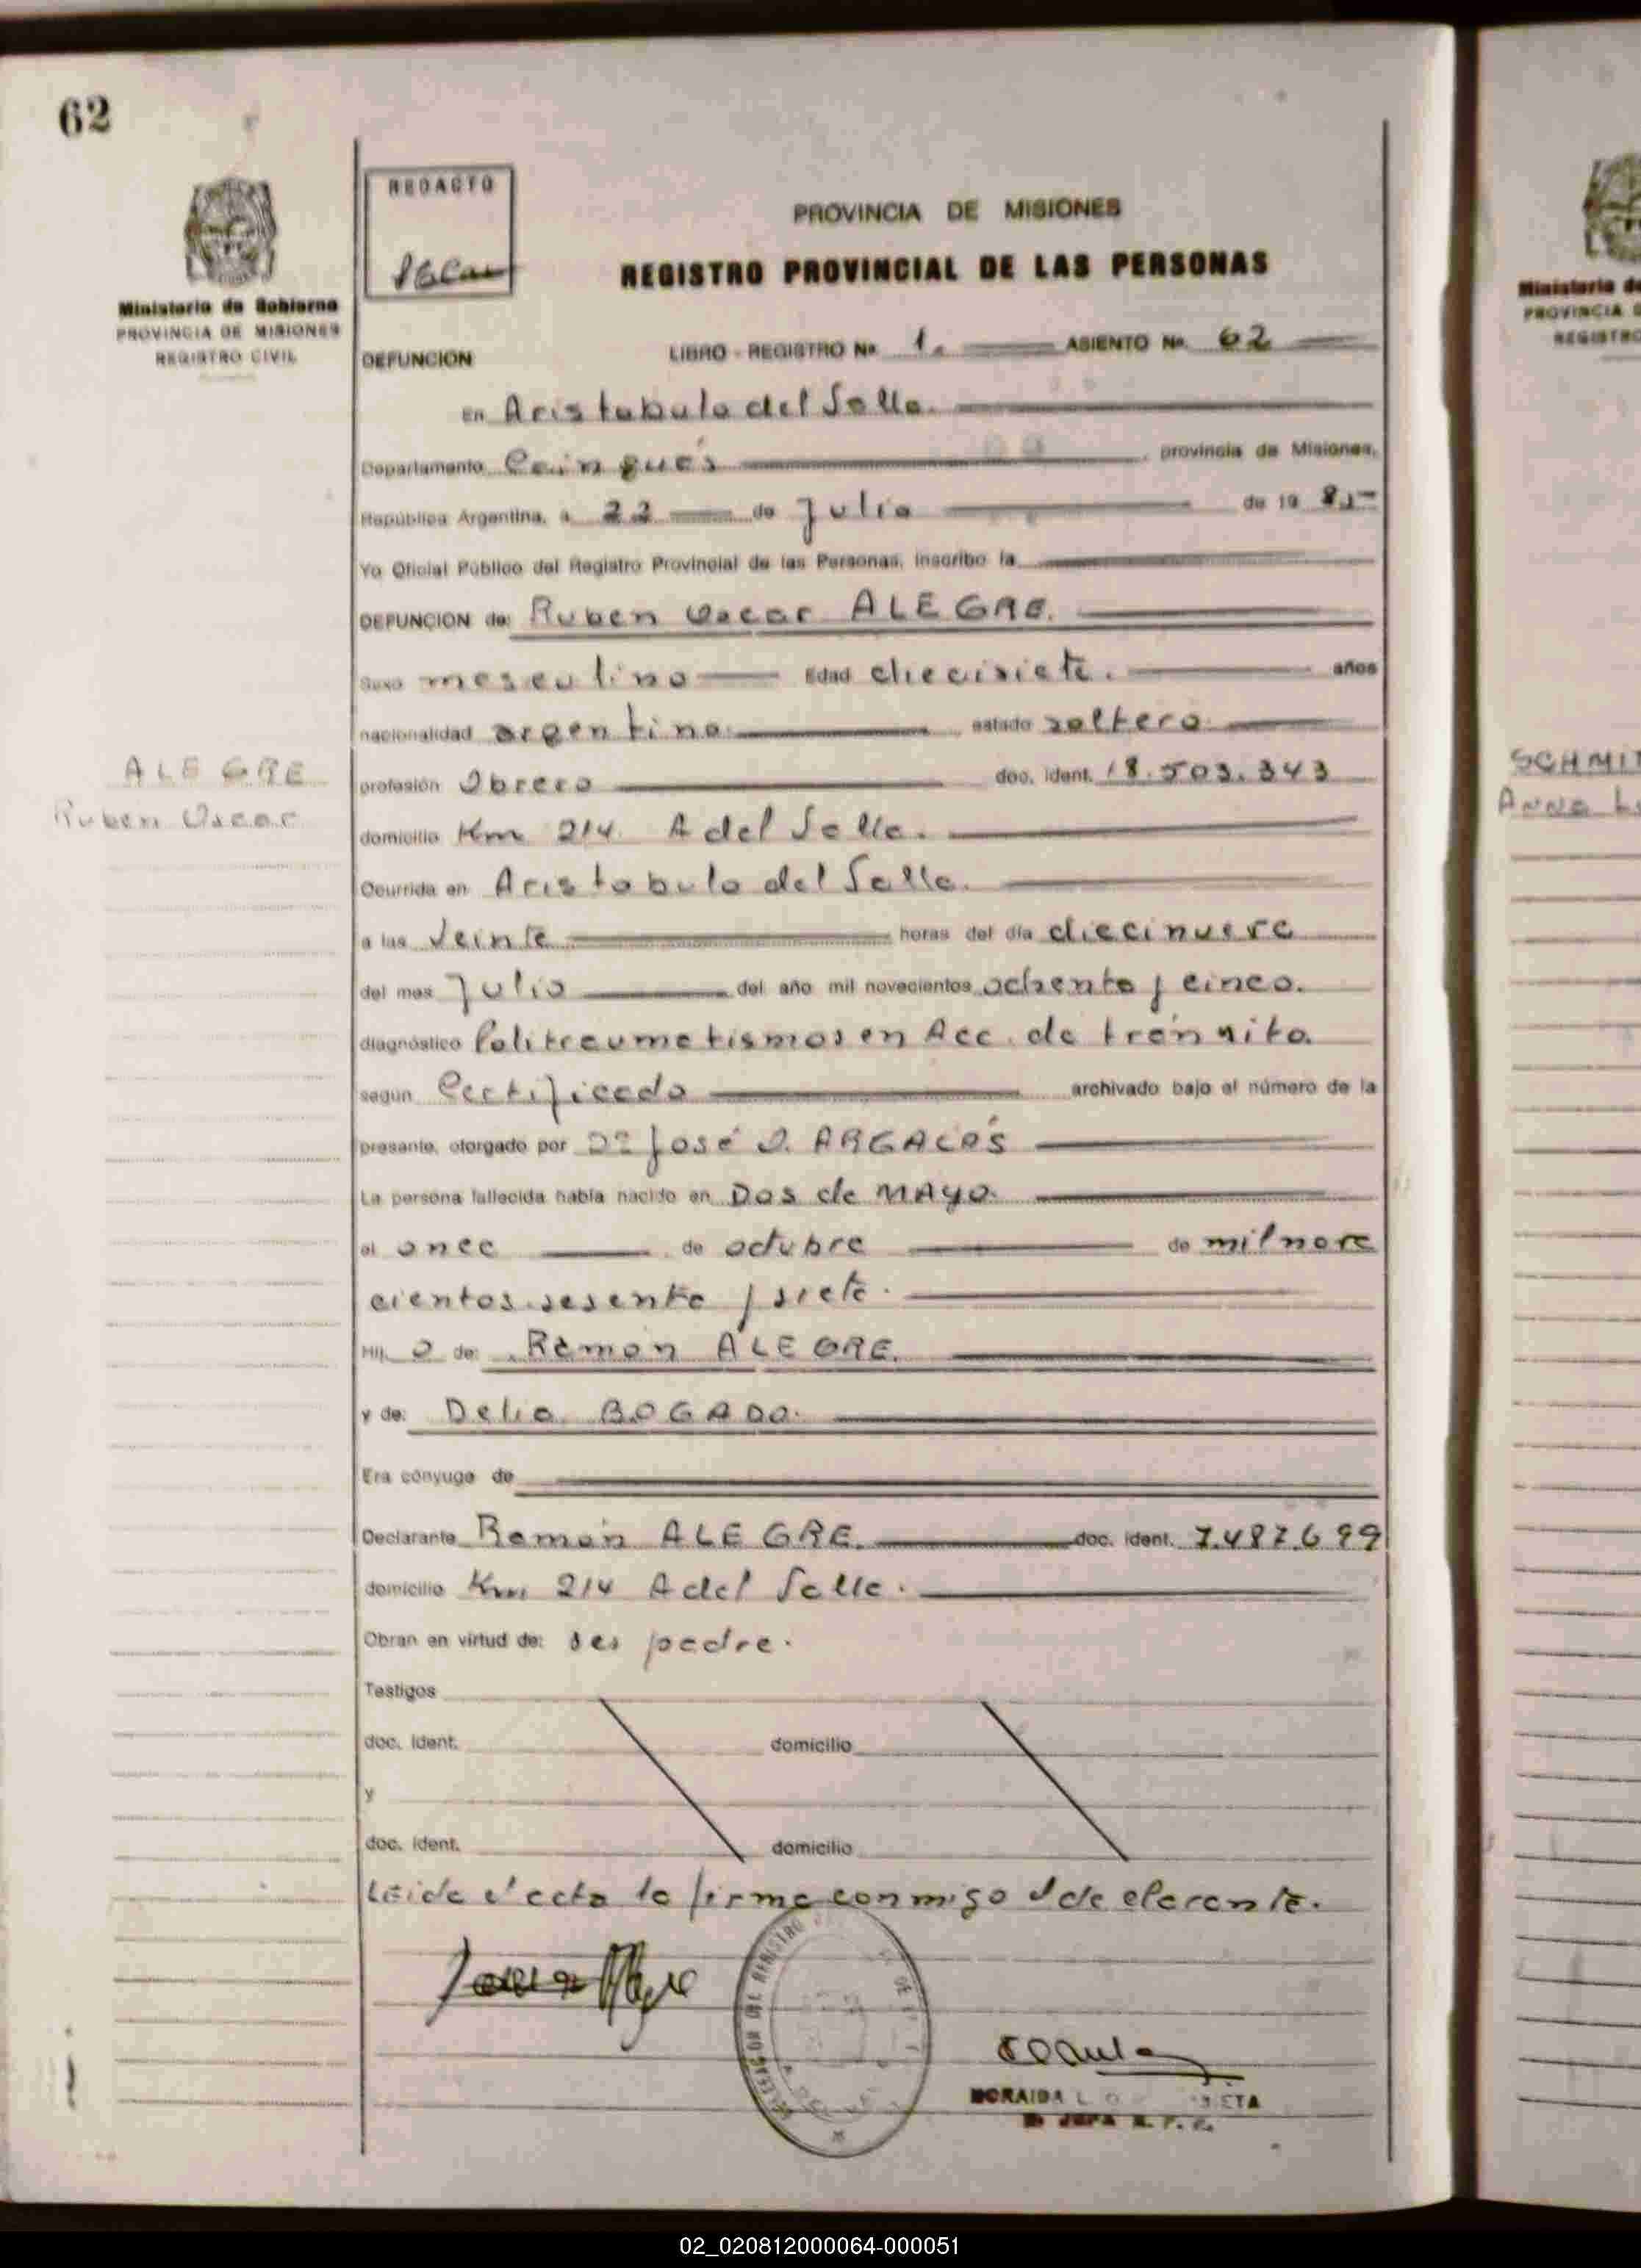 62
REDACTO
Ministerio de Gobierno
PROVINCIA DE MISIONES
REGISTRO CIVIL
PROVINCIA DE MISIONES
REGISTRO PROVINCIAL DE LAS PERSONAS
DEFUNCION LIBRO - REGISTRO Nº 1. ASIENTO Nº 62
En Aristobulo del Valle.
Departamento Cainguás provincia de Misiones,
República Argentina, a 22 de Julio de 19 85
Yo Oficial Público del Registro Provincial de las Personas, inscribo la
DEFUNCION de: Ruben Oscar ALEGRE.
Sexo masculino Edad diecisiete. años
nacionalidad argentino estado soltero
ALEGRE
Ruben Oscar
profesión Obrero doc. ident. 18.503.343
domicilio Km 214 A del Valle.
Ocurrida en Aristobulo del Valle.
a las Veinte horas del día diecinueve
del mes Julio del año mil novecientos ochenta y cinco.
diagnóstico Politraumatismos en Acc. de tránsito
según Certificado archivado bajo el número de la
presente, otorgado por Dº José O. ARGALAS
La persona fallecida había nacido en Dos de MAYO.
el once de octubre de mil nove
cientos sesenta y siete.
Hij o de: Ramon ALEGRE.
y de: Delia BOGADO.
Era cónyuge de
Declarante Ramón ALEGRE. doc. ident. 7.487.699
domicilio Km 214 A del Valle.
Obran en virtud de: ser padre.
Testigos
doc. ident. domicilio
y
doc. ident. domicilio
Leida el acta la firma conmigo el declarante.
DEL REGISTRO
MORAIDA L.
JEFA R. P. P.
SCHMIT
Anna
Ministerio de
PROVINCIA D
REGISTRO
02_020812000064-000051